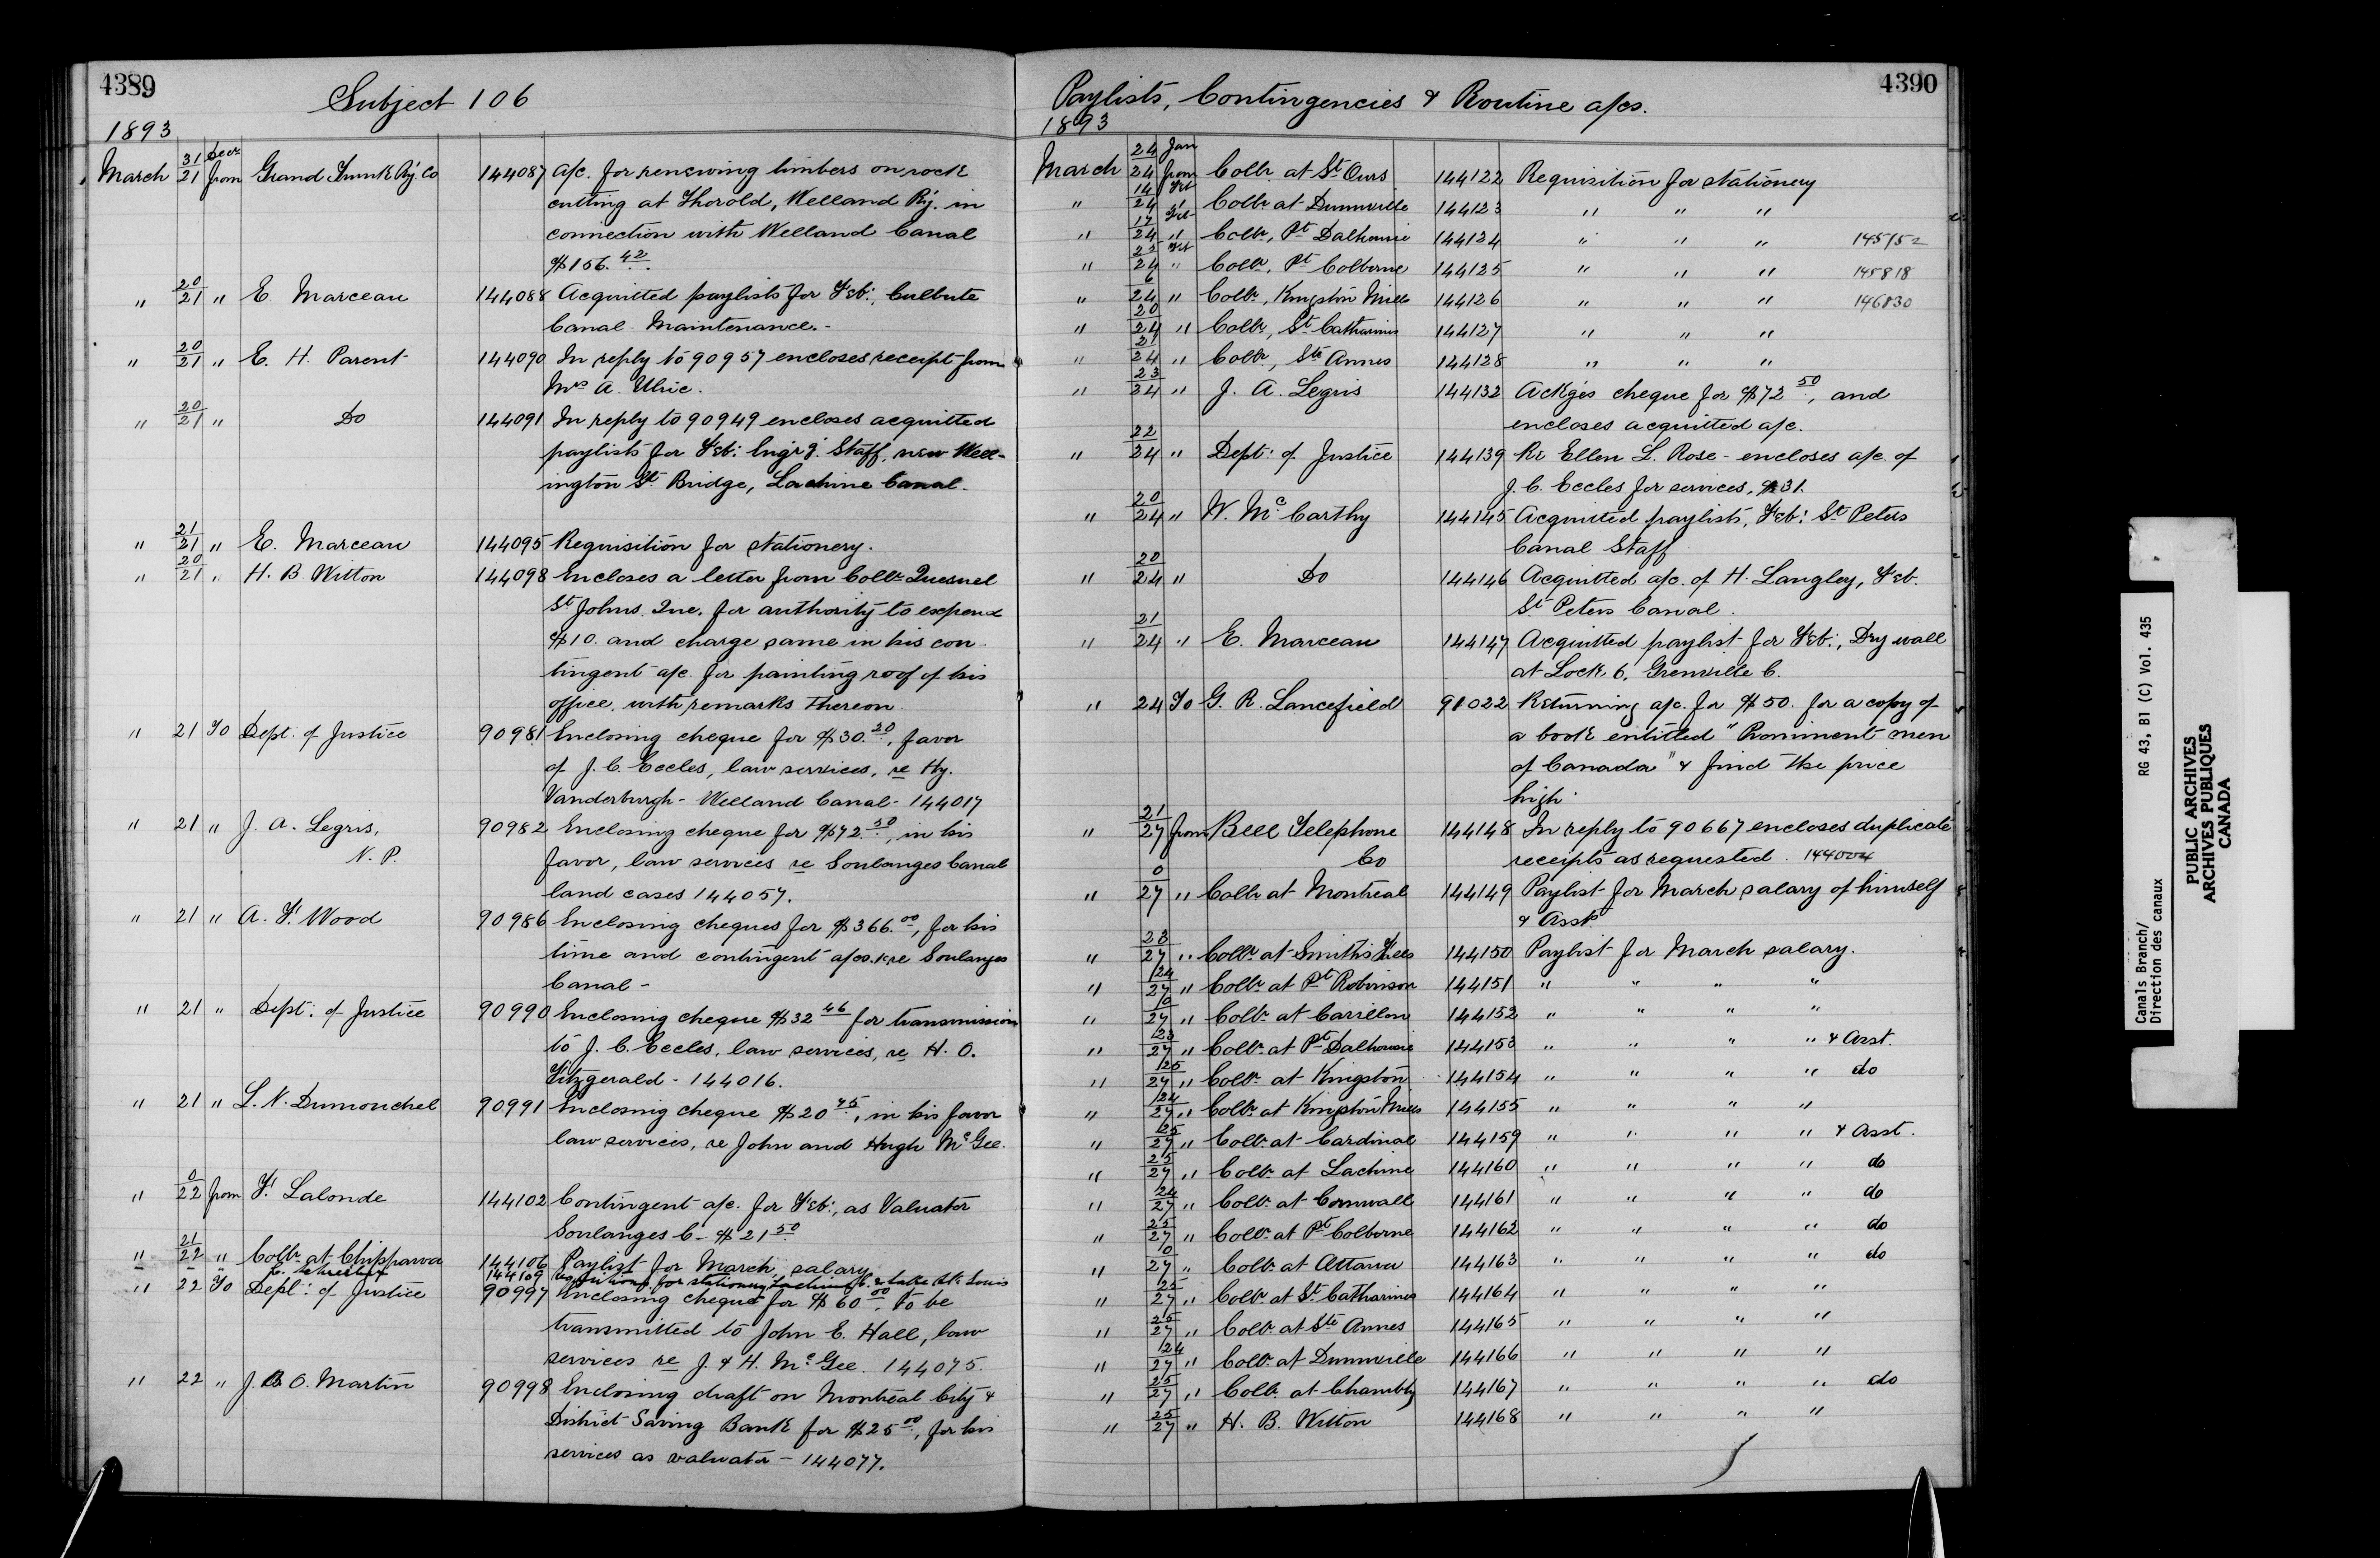 4389
Subject 106
1893
March 31/21 Decr from Grand Trunk Ry. Co 144087 a/c. for renewing timbers on rock
cutting at Thorold, Welland Ry. in
connection with Welland Canal
$156.42.
" 20/21 " E. Marceau 144088 Acquitted paylists for Feb:, Culbute
Canal Maintenance.-
" 20/21 " E. H. Parent 144090 In reply to 90957 encloses receipt from
Mrs A. Ulric.
" 20/21 " Do 144091 In reply to 90949 encloses acquitted
paylists for Feb: Engr'g. Staff, new Well-
ington St. Bridge, Lachine Canal.
" 21/21 " E. Marceau 144095 Requisition for stationery.
" 20/21 " H. B. Witton 144098 Encloses a letter from Collr. Quesnel
St Johns Que. for authority to expend
$10. and charge same in his con-
tingent a/c. for painting roof of his
office, with remarks thereon.
" 21 To Dept. of Justice 90981 Enclosing cheque for $30.20, favor
of J. C. Eccles, law services, re Hy.
Vanderburgh - Welland Canal - 144017
" 21 " J. A. Legris, 90982 Enclosing cheque for $72.50, in his
N. P. favor, law services re Soulanges Canal
land cases 144057.
" 21 " A. F. Wood 90986 Enclosing cheques for $366.00, for his
time and contingent a/cs. re Soulanges
Canal -
" 21 " Dept. of Justice 90990 Enclosing cheque $32.46 for transmission
to J. C. Eccles, law services, re H. O.
Fitzgerald - 144016.
" 21 " L. N. Dumouchel 90991 Enclosing cheque $20.45, in his favor
law services, re John and Hugh McGee.
" 0/22 from F. Lalonde 144102 Contingent a/c. for Feb:, as Valuator
Soulanges C. - $21.50
" 21/22 " Collr. at Chippawa 144106 Paylist for March salary
" 144109 Requisitions for stationery Lachine C. & Lake St. Louis
" 22 To Dept: of Justice 90997 Enclosing cheque for $60.00, to be
transmitted to John E. Hall, law
services re J. & H. McGee. 144075.
" 22 " J. B. O. Martin 90998 Enclosing draft on Montreal City &
District Saving Bank for $25.00, for his
services as valuator - 144077.
4390
Paylists, Contingencies & Routine a/cs.
1893
March 24/24 Jan from Collr. at St. Ours 144122 Requisition for stationery
" 14/24 Feb " Collr. at Dunnville 144123 " " "
" 17/24 Feb " Collr., Pt. Dalhousie 144124 " " " 145152
" 22/24 Feb " Collr., Pt. Colborne 144125 " " " 145818
" 6/24 " Collr., Kingston Mills 144126 " " " 146830
" 20/24 " Collr., St. Catharines 144127 " " "
" 21/24 " Collr., Ste Annes 144128 " " "
" 23/24 " J. A. Legris 144132 Ackg'es cheque for $72.50, and
encloses acquitted a/c.
" 22/24 " Dept: of Justice 144139 Re Ellen L. Rose - encloses a/c. of
J. C. Eccles for services, $31.
" 20/24 " W. McCarthy 144145 Acquitted paylists, Feb: St Peters
Canal Staff
" 20/24 " Do 144146 Acquitted a/c. of H. Langley, Feb.
St. Peters Canal.
" 21/24 " E. Marceau 144147 Acquitted paylist for Feb:, Dry wall
at Lock 6, Grenville C.
" 24 To G. R. Lancefield 91022 Returning a/c. for $50. for a copy of
a book entitled "Prominent men
of Canada" & find the price
high.
" 21/27 from Bell Telephone 144148 In reply to 90667 encloses duplicate
Co receipts as requested. 144004
" 0/27 " Collr. at Montreal 144149 Paylist for March salary of himself
& Assts
" 23/27 " Collr. at Smiths Falls 144150 Paylist for March salary.
" 24/27 " Collr. at Pt. Robinson 144151 " " " "
" 10/27 " Collr. at Carillon 144152 " " " "
" 23/27 " Collr. at Pt. Dalhousie 144153 " " " " & Asst.
" 25/27 " Collr. at Kingston 144154 " " " " do
" 24/27 " Collr. at Kingston Mills 144155 " " " "
" 25/27 " Collr. at Cardinal 144159 " " " " & Asst.
" 25/27 " Collr. at Lachine 144160 " " " " do
" 24/27 " Collr. at Cornwall 144161 " " " " do
" 25/27 " Collr. at Pt. Colborne 144162 " " " " do
" 10/27 " Collr. at Ottawa 144163 " " " " do
" 25/27 " Collr. at St. Catharines 144164 " " " "
" 25/27 " Collr. at Ste Annes 144165 " " " "
" 24/27 " Collr. at Dunnville 144166 " " " "
" 25/27 " Collr. at Chambly 144167 " " " " do
" 25/27 " H. B. Witton 144168 " " " "
Canals Branch/ RG 43, B1 (C) Vol. 435
Direction des canaux
PUBLIC ARCHIVES
ARCHIVES PUBLIQUES
CANADA